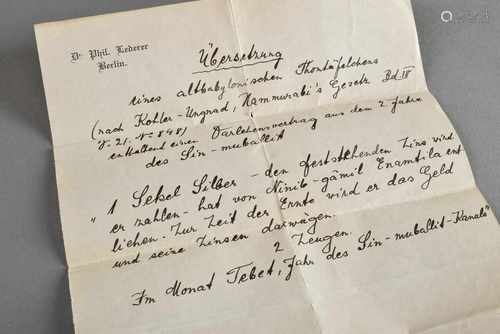 Dr Phil. Lederer
Berlin.
Übersetzung
eines altbabylonischen Thontäfelchens
(nach Kohler-Ungnad, Hammurabi's Gesetz Bd. IV
S. 21, No 848)
enthaltend einen Darlehensvertrag aus dem 2. Jahre
des Sin-muballit
"1 Sekel Silber - den feststehenden Zins wird
er zahlen - hat von Ninib-gâmil Enamtila ent-
liehen. Zur Zeit der Ernte wird er das Geld
und seine Zinsen darwägen.
2 Zeugen.
Im Monat Tebet, Jahr des Sin-muballit-Kanals"